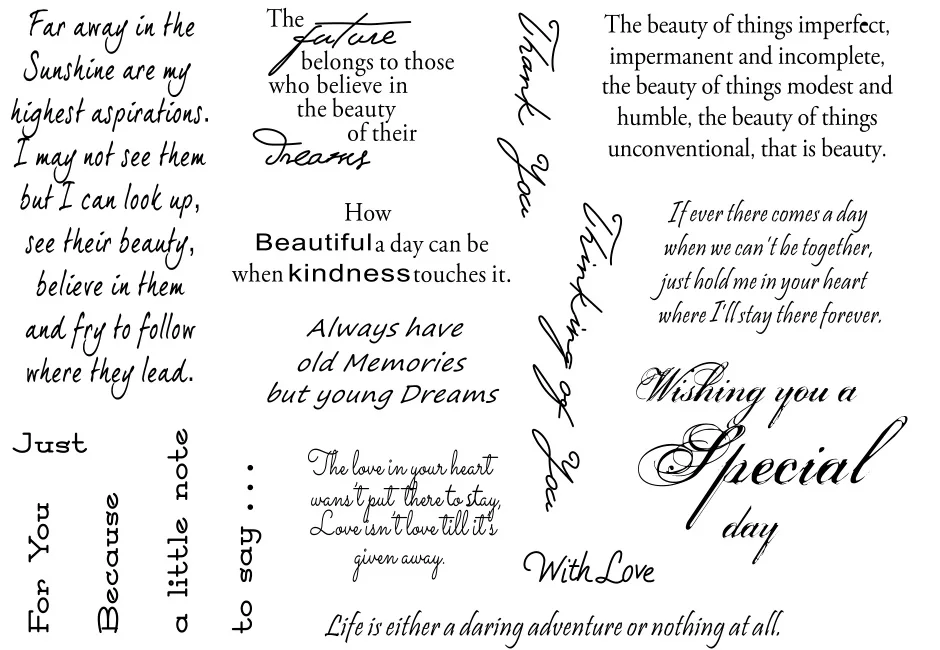 Far away in the
Sunshine are my
highest aspirations.
I may not see them
but I can look up,
see their beauty,
believe in them
and fry to follow
where they lead.
The
future
belongs to those
who believe in
the beauty
of their
Dreams
Thank You
The beauty of things imperfect,
impermanent and incomplete,
the beauty of things modest and
humble, the beauty of things
unconventional, that is beauty.
How
Beautiful a day can be
when kindness touches it.
Thinking of You
If ever there comes a day
when we can't be together,
just hold me in your heart
where I'll stay there forever.
Always have
old Memories
but young Dreams
Wishing you a
Special
day
Just
For You
Because
a little note
to say ...
The love in your heart
wans't put there to stay,
Love isn't love till it's
given away.
With Love
Life is either a daring adventure or nothing at all.